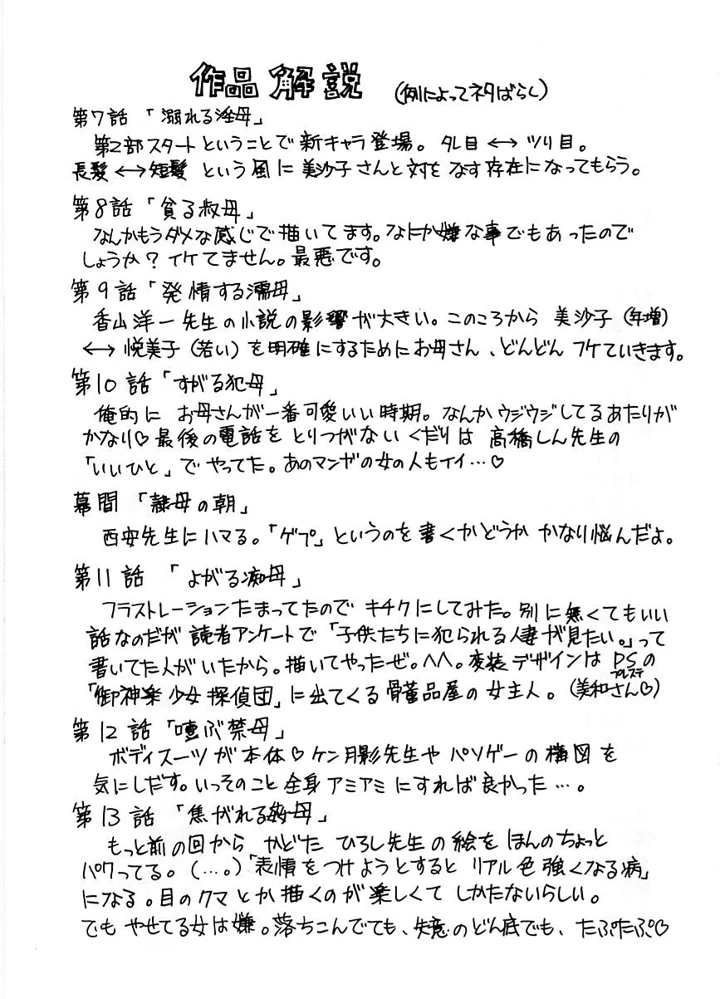 作品解説 (例によってネタばらし)
第7話 「溺れる淫母」
第2部スタートということで新キャラ登場。タレ目 ←→ ツリ目。
長髪 ←→ 短髪 という風に美沙子さんと対をなす存在になってもらう。
第8話 「貪る叔母」
なんかもうダメな感じで描いてます。なにか嫌な事でもあったので
しょうか? イケてません。最悪です。
第9話 「発情する濡母」
香山洋一先生の小説の影響が大きい。このころから 美沙子 (年増)
←→ 悦美子 (若い) を明確にするためにお母さん、どんどん フケていきます。
第10話 「すがる犯母」
俺的に お母さんが一番可愛いい時期。なんかウジウジしてるあたりが
かなり♡ 最後の電話を とりつがない くだりは 高橋しん先生の
「いいひと」でやってた。あのマンガの女の人もイイ…♡
幕間 「隷母の朝」
西安先生にハマる。「ゲプ」というのを書くかどうか かなり悩んだよ。
第11話 「よがる痴母」
フラストレーションたまってたので キチクにしてみた。別に無くてもいい
話なのだが 読者アンケートで「子供たちに犯られる人妻が見たい。」って
書いてた人がいたから。描いてやったぜ。へへ。変装デザインは PSの
プレステ
「御神楽少女探偵団」に出てくる骨董品屋の女主人。(美和さん♡)
第12話 「噎ぶ禁母」
ボディスーツが本体♡ ケン月影先生や パソゲーの構図を
気にしだす。いっそのこと全身アミアミにすれば良かった…。
第13話 「焦がれる母」
もっと前の回から かどたひろし先生の絵を ほんのちょっと
パクってる。(…。)「表情をつけようとすると リアル色強くなる病」
になる。目のクマとか描くのが楽しくて しかたないらしい。
でも やせてる女は嫌。落ちこんでても、失意のどん底でも、たぷたぷ♡